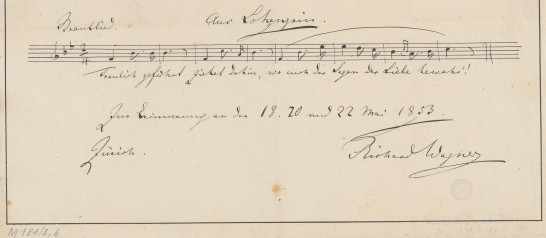 Brautlied. Aus Lohengrin.
Treulich geführt ziehet dahin, wo euch der Segen der Liebe bewahr'!
Zur Erinnerung an den 18. 20 und 22 Mai 1853.
Zürich. Richard Wagner
M 181/3,6